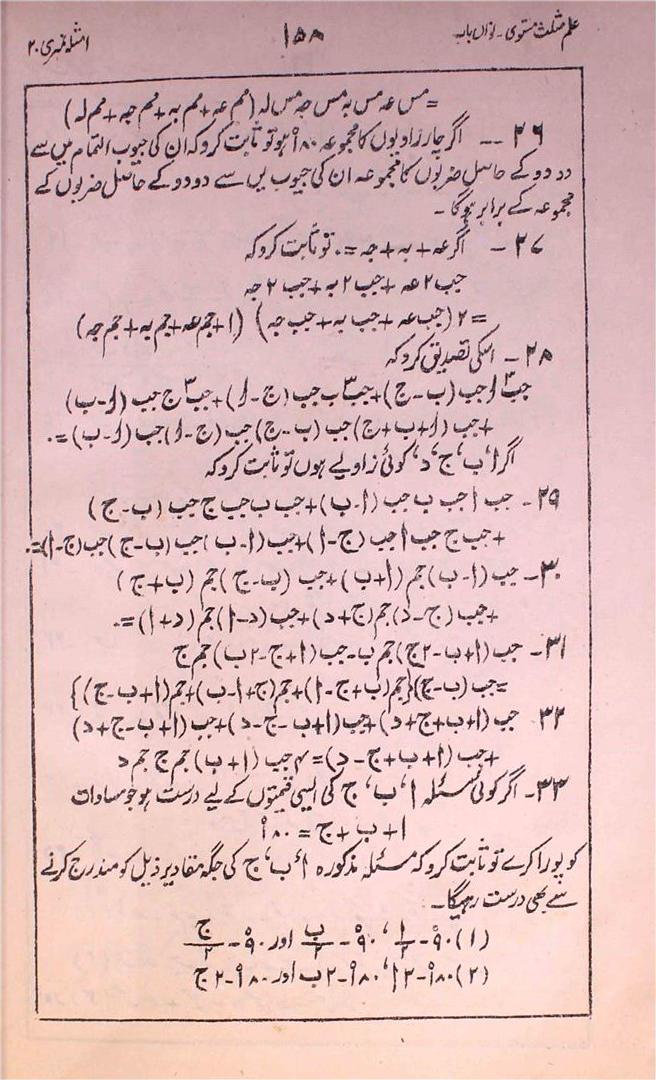 علم مثلث مستوی۔ نواں باب ۱۵۸ امثلہ نمبری ۲۰
= مس عہ مس بہ مس جہ مس لہ (مم عہ + مم بہ + مم جہ + مم لہ)
۲۶ ۔۔ اگر چار زاویوں کا مجموعہ ۱۸۰° ہو تو ثابت کرو کہ ان کی جیوب التمام میں سے
دو دو کے حاصل ضربوں کا مجموعہ ان کی جیوب یں سے دو دو کے حاصل ضربوں کے
مجموعہ کے برابر ہوگا ۔
۲۷ ۔ اگر عہ + بہ + جہ = ۰ تو ثابت کرو کہ
جب ۲ عہ + جب ۲ بہ + جب ۲ جہ
= ۲ (جب عہ + جب بہ + جب جہ) (۱ + جم عہ + جم بہ + جم جہ)
۲۸ ۔ اسکی تصدیق کرو کہ
جب۳ ا جب (ب - ج) + جب۳ ب جب (ج - ا) + جب۳ ج جب (ا - ب)
+ جب (ا + ب + ج) جب (ب - ج) جب (ج - ا) جب (ا - ب) = ۰
اگر ا، ب، ج، د، کوئی زاویے ہوں تو ثابت کرو کہ
۲۹ ۔ جب ا جب ب جب (ا - ب) + جب ب جب ج جب (ب - ج)
+ جب ج جب ا جب (ج - ا) + جب (ا - ب) جب (ب - ج) جب (ج - ا) = ۰
۳۰ ۔ جب (ا - ب) جم (ا + ب) + جب (ب - ج) جم (ب + ج)
+ جب (ج - د) جم (ج + د) + جب (د - ا) جم (د + ا) = ۰
۳۱ ۔ جب (ا + ب - ۲ ج) جم ب - جب (ا + ج - ۲ ب) جم ج
= جب (ب - ج) {جم (ب + ج - ا) + جم (ج + ا - ب) + جم (ا + ب - ج)}
۳۲ جب (ا + ب + ج + د) + جب (ا + ب - ج - د) + جب (ا + ب - ج + د)
+ جب (ا + ب + ج - د) = ۴ جب (ا + ب) جم ج جم د
۳۳ ۔ اگر کوئی مسئلہ ا، ب، ج کی ایسی قیمتوں کے لیے درست ہو جو مساوات
ا + ب + ج = ۱۸۰°
کو پورا کرے تو ثابت کرو کہ مسئلہ مذکورہ ا، ب، ج کی جگہ مقادیر ذیل کو مندرج کرنے
سے بھی درست رہیگا ۔
(۱) ۹۰° - ا/۲، ۹۰° - ب/۲ اور ۹۰° - ج/۲
(۲) ۱۸۰° - ۲ ا، ۱۸۰° - ۲ ب اور ۱۸۰° - ۲ ج